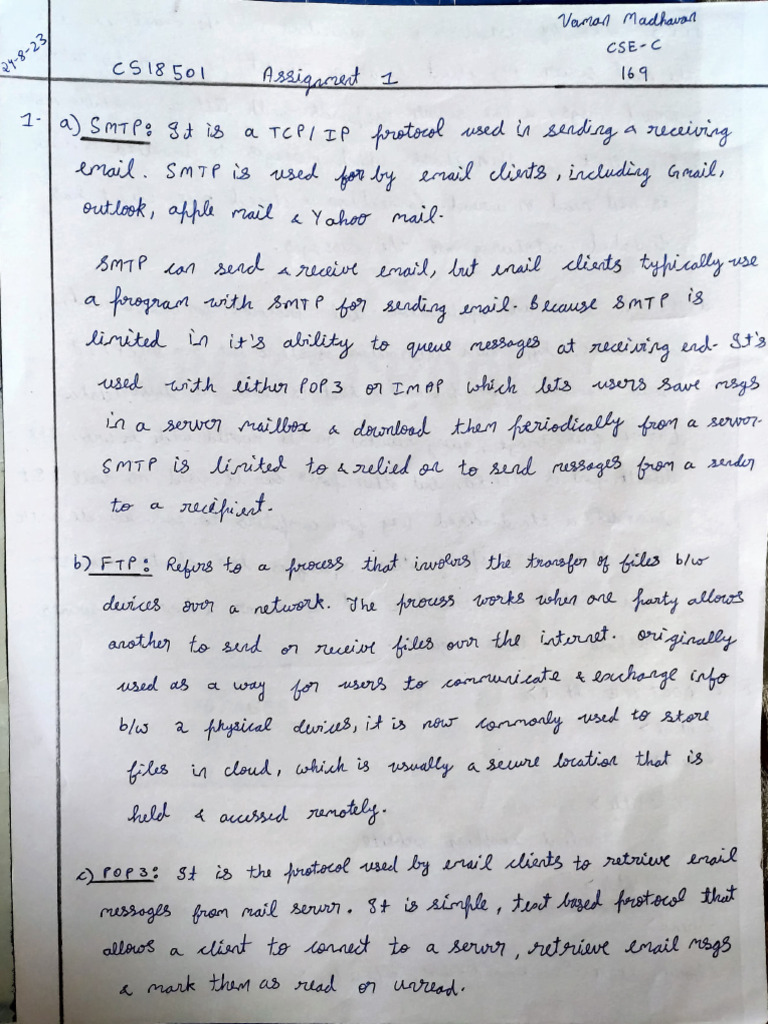 Vaman Madhavan
24-8-23
CSE-C
CS18501 Assignment 1
169
1. a) SMTP: It is a TCP/IP protocol used in sending & receiving
email. SMTP is used by email clients, including Gmail,
outlook, apple mail & Yahoo mail.
SMTP can send & receive email, but email clients typically use
a program with SMTP for sending email. Because SMTP is
limited in it's ability to queue messages at receiving end. It's
used with either POP3 or IMAP which lets users save msgs
in a server mailbox & download them periodically from a server.
SMTP is limited to & relied on to send messages from a sender
to a recipient.
b) FTP: Refers to a process that involves the transfer of files b/w
devices over a network. The process works when one party allows
another to send or receive files over the internet. originally
used as a way for users to communicate & exchange info
b/w 2 physical devices, it is now commonly used to store
files in cloud, which is usually a secure location that is
held & accessed remotely.
c) POP3: It is the protocol used by email clients to retrieve email
messages from mail server. It is simple, text based protocol that
allows a client to connect to a server, retrieve email msgs
& mark them as read or unread.